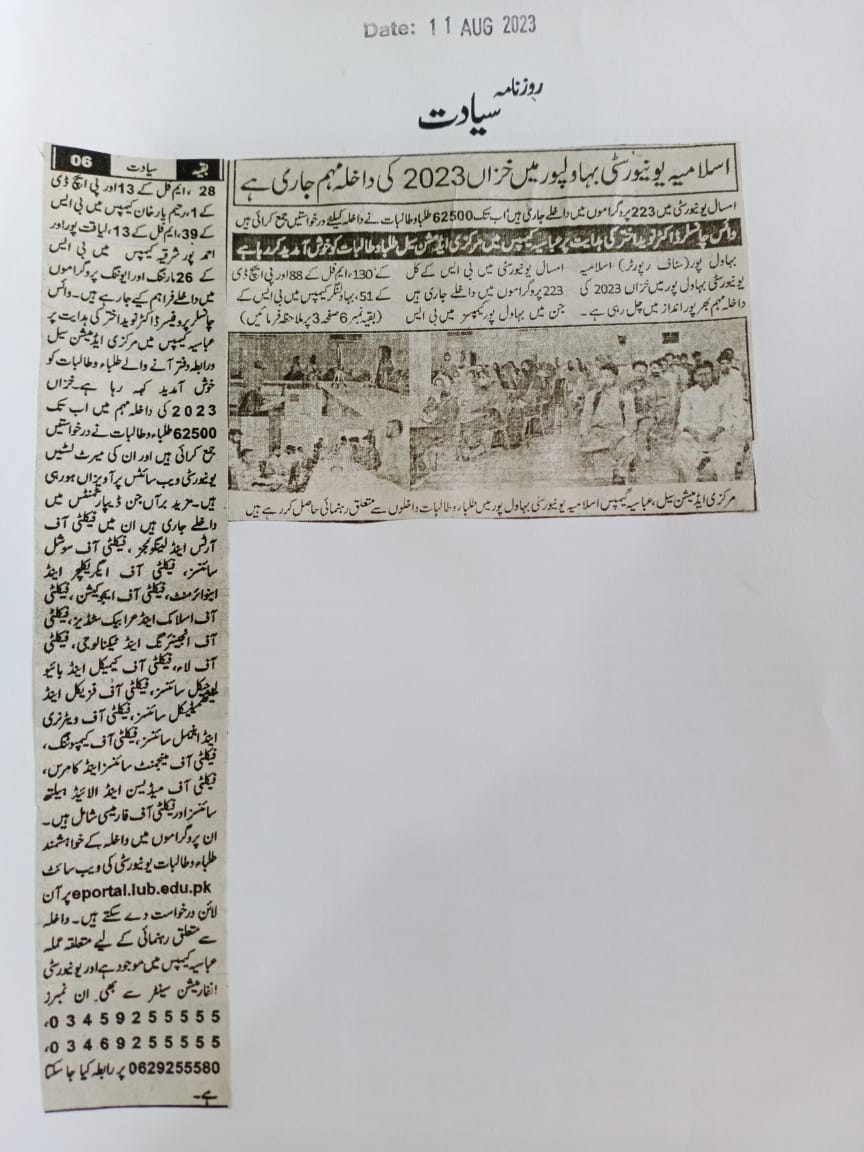 Date: 11 AUG 2023
روزنامہ
سیادت
اسلامیہ یونیورسٹی بہاولپور میں خزاں 2023 کی داخلہ مہم جاری ہے
امسال یونیورسٹی میں 223 پروگراموں میں داخلے جاری ہیں اب تک 62500 طلباء وطالبات نے داخلہ کیلئے درخواستیں جمع کرائی ہیں
وائس چانسلر ڈاکٹر نوید اختر کی ہدایت پر عباسیہ کیمپس میں مرکزی ایڈمشن سیل طلباء وطالبات کو خوش آمدید کر رہا ہے
بہاول پور (سٹاف رپورٹر) اسلامیہ
یونیورسٹی بہاول پور میں خزاں 2023 کی
داخلہ مہم بھرپور انداز میں چل رہی ہے۔
امسال یونیورسٹی میں بی ایس کے کل
223 پروگراموں میں داخلے جاری ہیں
جن میں بہاول پور کیمپسز میں بی ایس
کے 130، ایم فل کے 88 اور پی ایچ ڈی
کے 51، بہاولنگر کیمپس میں بی ایس کے
(بقیہ نمبر 6 صفحہ 3 پر ملاحظہ فرمائیں)
مرکزی ایڈمشن سیل، عباسیہ کیمپس اسلامیہ یونیورسٹی بہاول پور میں طلباء وطالبات داخلوں سے متعلق رہنمائی حاصل کر رہے ہیں
بقیہ سیادت 06
28، ایم فل کے 13 اور پی ایچ ڈی
کے 1، رحیم یار خان کیمپس میں بی ایس
کے 39، ایم فل کے 13، لیاقت پور اور
احمد پور شرقیہ کیمپس میں بی ایس
کے 26 مارننگ اور ایوننگ پروگراموں
میں داخلے فراہم کیے جا رہے ہیں۔ وائس
چانسلر پروفیسر ڈاکٹر نوید اختر کی ہدایت پر
عباسیہ کیمپس میں مرکزی ایڈمیشن سیل
ورابطہ دفتر آنے والے طلباء وطالبات کو
خوش آمدید کہہ رہا ہے۔ خزاں
2023 کی داخلہ مہم میں اب تک
62500 طلباء وطالبات نے درخواستیں
جمع کرائی ہیں اور ان کی میرٹ لسٹیں
یونیورسٹی ویب سائٹس پر آویزاں ہو رہی
ہیں۔ مزید برآں جن ڈیپارٹمنٹس میں
داخلے جاری ہیں ان میں فیکلٹی آف
آرٹس اینڈ لینگوئجز، فیکلٹی آف سوشل
سائنسز، فیکلٹی آف ایگریکلچر اینڈ
اینوائرمنٹ، فیکلٹی آف ایجوکیشن، فیکلٹی
آف اسلامک اینڈ عرابیک سٹڈیز، فیکلٹی
آف انجینئرنگ اینڈ ٹیکنالوجی، فیکلٹی
آف لاء، فیکلٹی آف کیمیکل اینڈ بائیو
لوجیکل سائنسز، فیکلٹی آف فزیکل اینڈ
میتھمیٹیکل سائنسز، فیکلٹی آف ویٹرنری
اینڈ اینیمل سائنسز، فیکلٹی آف کمپیوٹنگ،
فیکلٹی آف مینجمنٹ سائنسز اینڈ کامرس،
فیکلٹی آف میڈیسن اینڈ الائیڈ ہیلتھ
سائنسز اور فیکلٹی آف فارمیسی شامل ہیں۔
ان پروگراموں میں داخلہ کے خواہشمند
طلباء وطالبات یونیورسٹی کی ویب سائٹ
eportal.iub.edu.pk پر آن
لائن درخواست دے سکتے ہیں۔ داخلہ
سے متعلق رہنمائی کے لیے متعلقہ عملہ
عباسیہ کیمپس میں موجود ہے اور یونیورسٹی
انفارمیشن سینٹر سے بھی ان نمبرز
03459255555،
03469255555،
0629255580 پر رابطہ کیا جا سکتا
ہے۔